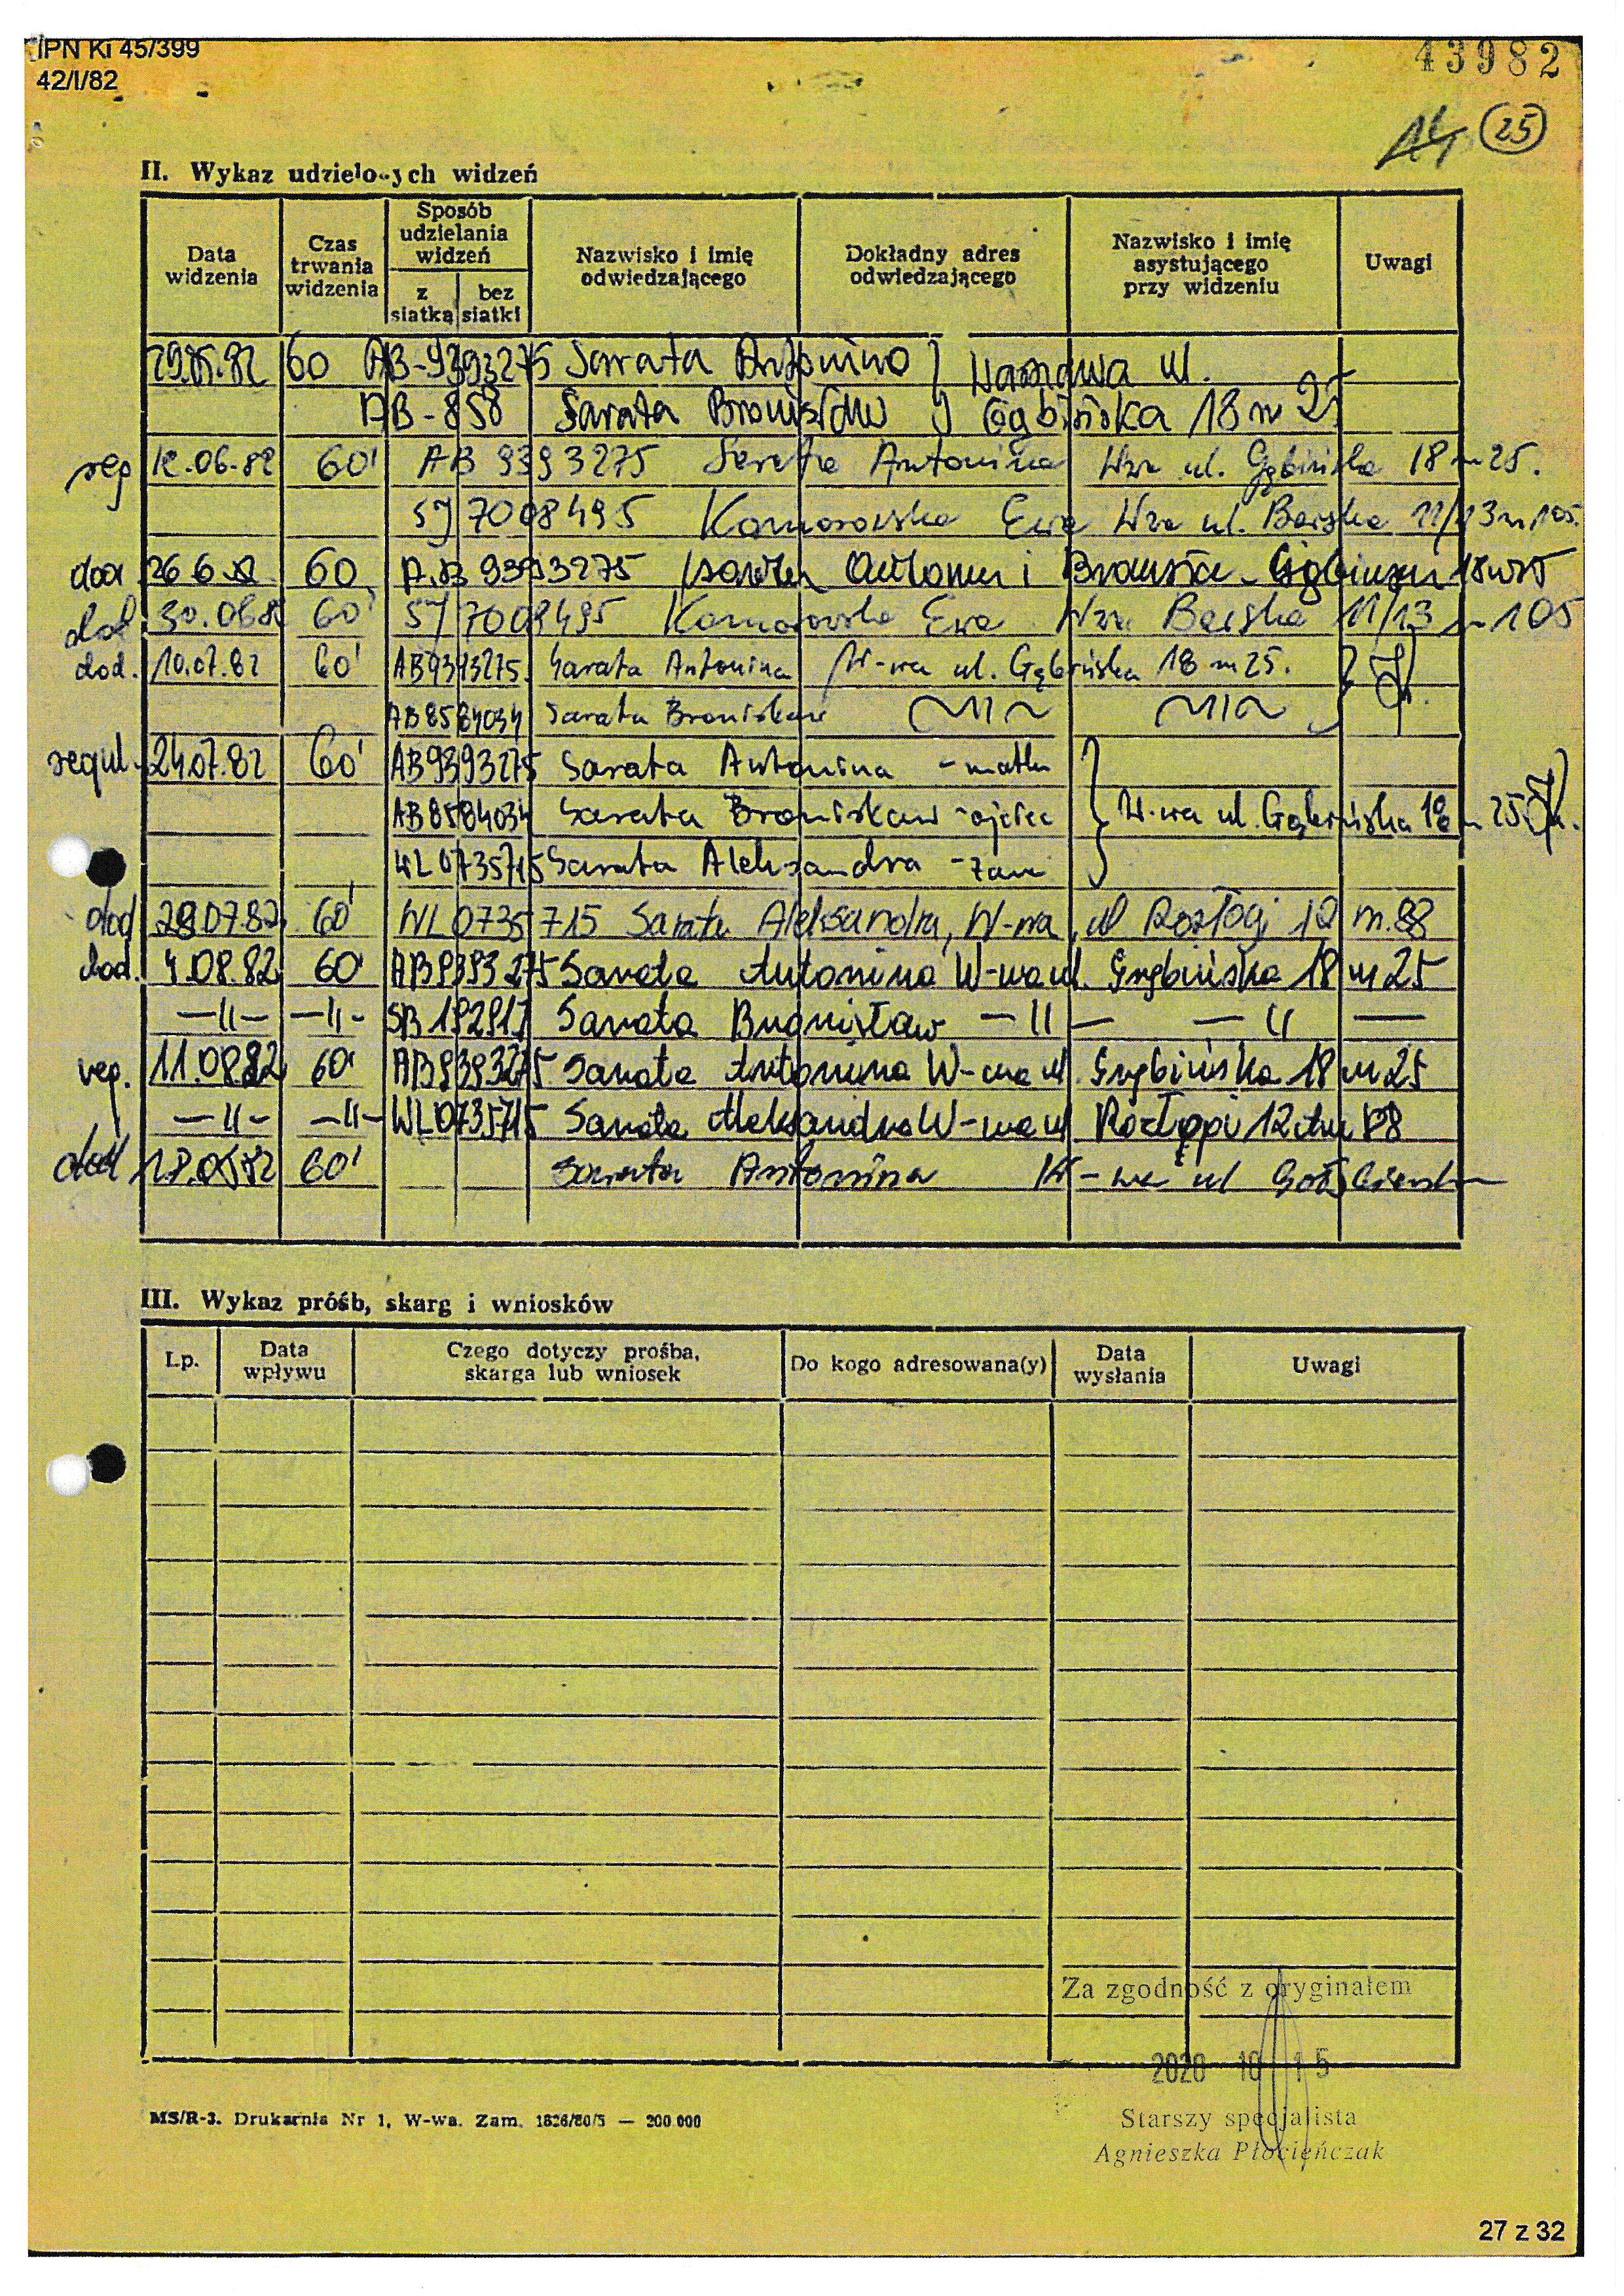 IPN Ki 45/399
42/I/82
43982
25
II. Wykaz udzielonych widzeń
Data widzenia
Czas trwania widzenia
Sposób udzielania widzeń
z siatką
bez siatki
Nazwisko i imię odwiedzającego
Dokładny adres odwiedzającego
Nazwisko i imię asystującego przy widzeniu
Uwagi
29.05.82 60 AB-9393275 Sarata Antonina } Warszawa ul.
AB-858 Sarata Bronisław } Gąbińska 18 m 25
reg 12.06.82 60' AB 9393275 Sarata Antonina Wwa ul. Gąbińska 18 m 25.
SJ 7008495 Komorowska Ewa Wwa ul. 11/13 m 105.
dod 26 6 82 60 AB 9393275 Sarata Antonina i Bronisław Gąbińska 18 m 25
dod. 30.06.82 60' SJ 7008495 Komorowska Ewa Wwa 11/13 m 105
dod. 10.07.82 60' AB9393275. Sarata Antonina W-wa ul. Gąbińska 18 m 25.
AB8584034 Sarata Bronisław ~11~ ~11~
regul. 24.07.82 60' AB9393275 Sarata Antonina - matka
AB8584034 Sarata Bronisław - ojciec } W-wa ul. Gąbińska 18 m 25
WL0735715 Sarata Aleksandra - żona
dod 28.07.82 60' WL0735715 Sarata Aleksandra, W-wa, ul Rozłogi 12 m. 88
dod. 4.08.82 60' AB9393275 Sarata Antonina W-wa ul. Grębińska 18 m 25
—11— —11— SB192917 Sarata Bronisław —11— —11—
reg. 11.08.82 60' AB9393275 Sarata Antonina W-wa ul. Grębińska 18 m 25
—11— —11— WL0735715 Sarata Aleksandra W-wa ul Rozłogi 12 m 88
dod 60' Sarata Antonina W-wa ul
III. Wykaz próśb, skarg i wniosków
Lp.
Data wpływu
Czego dotyczy prośba, skarga lub wniosek
Do kogo adresowana(y)
Data wysłania
Uwagi
Za zgodność z oryginałem
2020 10 15
MS/R-3. Drukarnia Nr 1, W-wa. Zam. 1826/80/5 — 200.000
Starszy specjalista
Agnieszka Płocieńczak
27 z 32